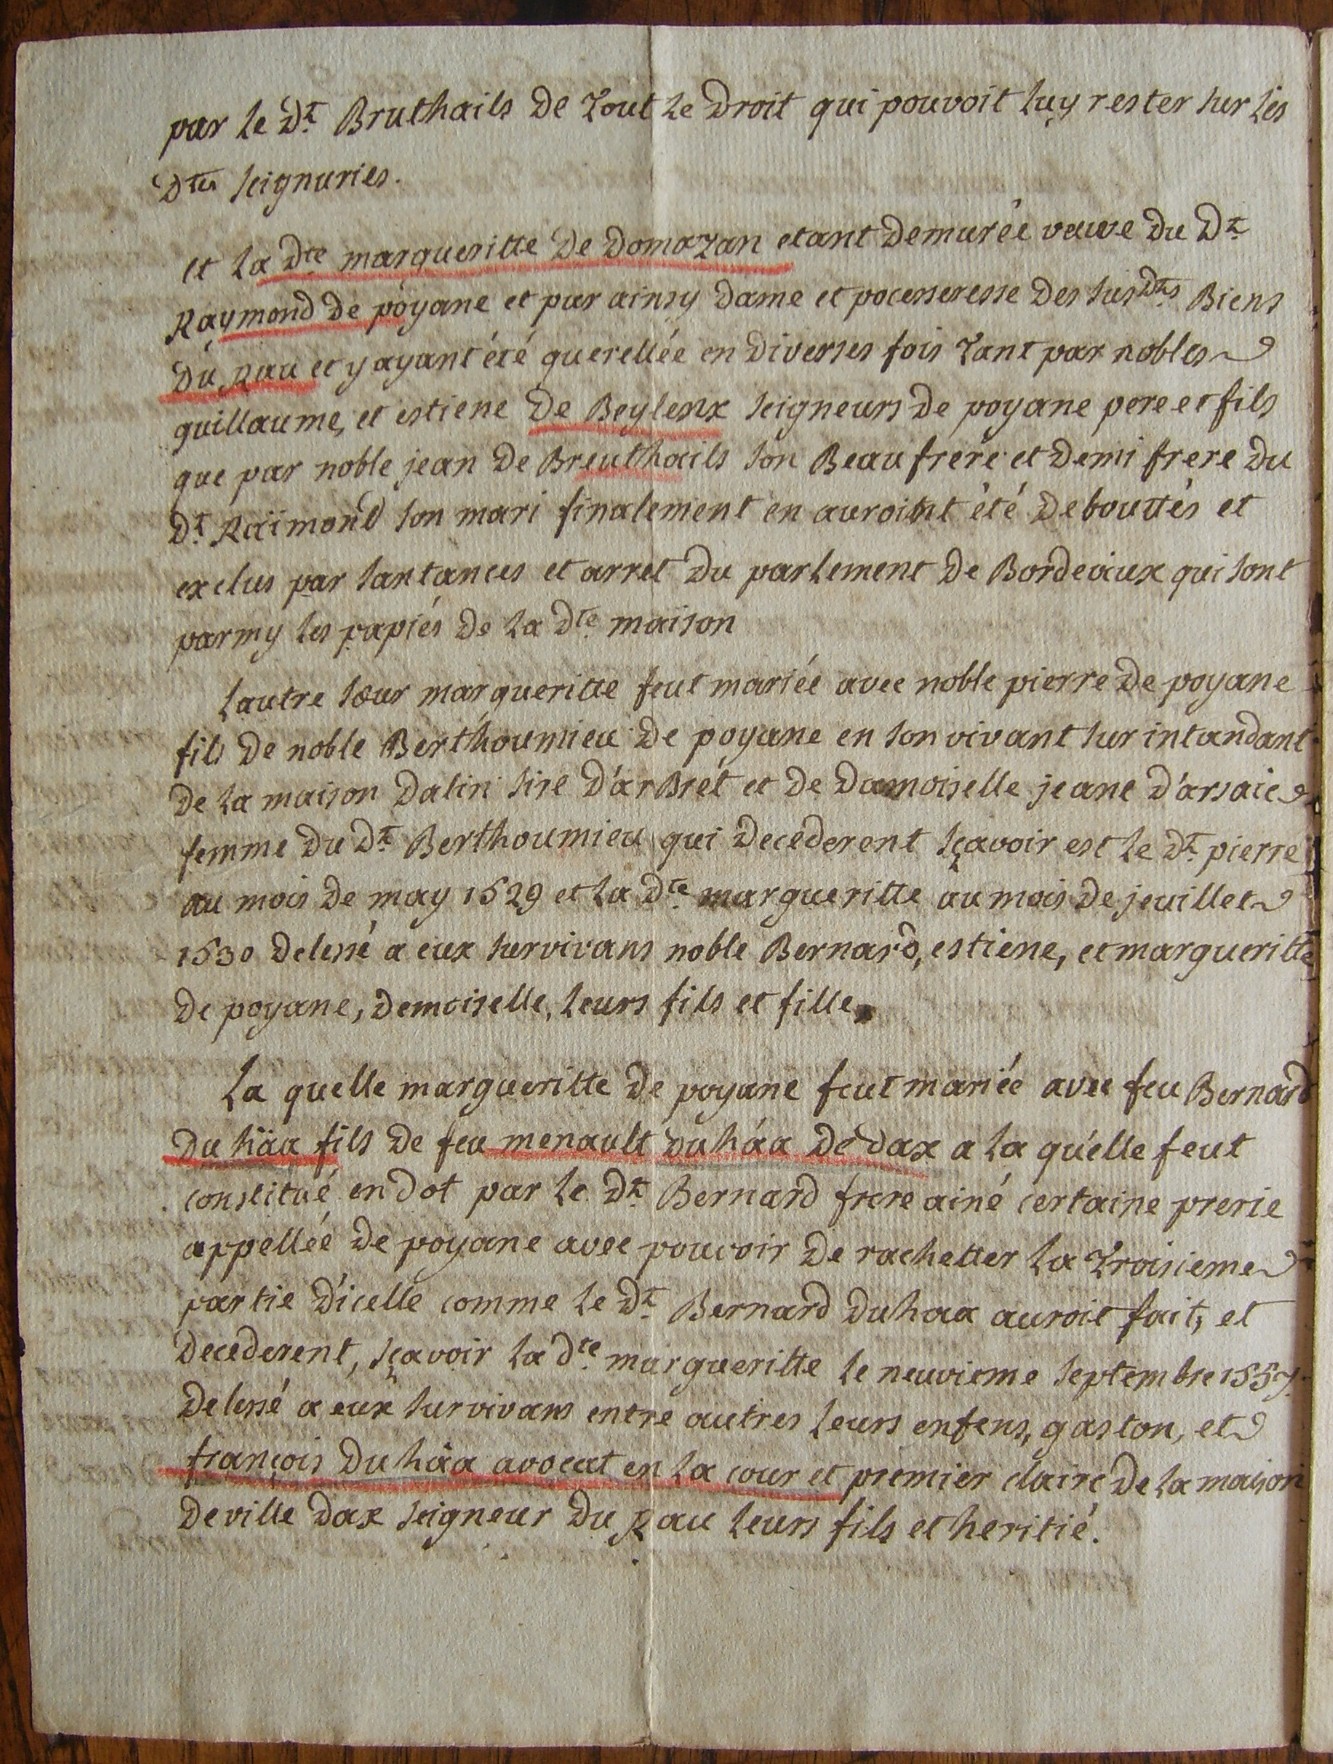 par le Dt Bruthails De Tout Le Droit qui pouvoit luy rester sur les
Dtes seignuries.
et La Dte margueritte De Domazan etant Demurée veuve Du Dt
Raymond De poyane et par ainsy Dame et pocerseresse Des susdts Biens
Du rau et y ayant été querellée en Diverses fois Tant par nobles
guillaume, et estiene De Beylenx seigneurs De poyane pere et fils
que par noble jean De Breuthails son Beau frere et Demi frere Du
Dt Raïmond son mari finalement en auroint été Deboutés et
exclus par santances et arret Du parlement De Bordeaux qui sont
parmy les papiés De La Dte maison
Lautre sœur margueritte feut mariée avec noble pierre De poyane
fils De noble Berthoumieu De poyane en son vivant sur intandant
De La maison Dalin sire D'arBrét et De Damoiselle jeane D'arsaie
femme Du Dt Berthoumieu qui Decederent sçavoir est Le Dt pierre
au mois De may 1529 et La Dte margueritte au mois De jeuillet
1530 Delessé a eux survivans noble Bernard, estiene, et margueritte
De poyane, Demoiselle, Leurs fils et fille,
La quelle margueritte De poyane feut mariée avec feu Bernard
Du häa fils De feu menault Duháa De Dax a La quélle feut
constitué en Dot par Le Dt Bernard frere ainé certaine prerie
appellée De poyane avec pouvoir De rachetter La Troisieme
partie D'icelle comme Le Dt Bernard Duhaa auroit fait, et
Decederent, sçavoir La Dte margueritte Le neuvieme septembre 1557.
Delessé a eux survivans entre autres Leurs enfens, gaston, et
françois Du häa avocat en La cour et premier claire De La maison
De ville Dax seigneur Du Rau Leurs fils et heritié.